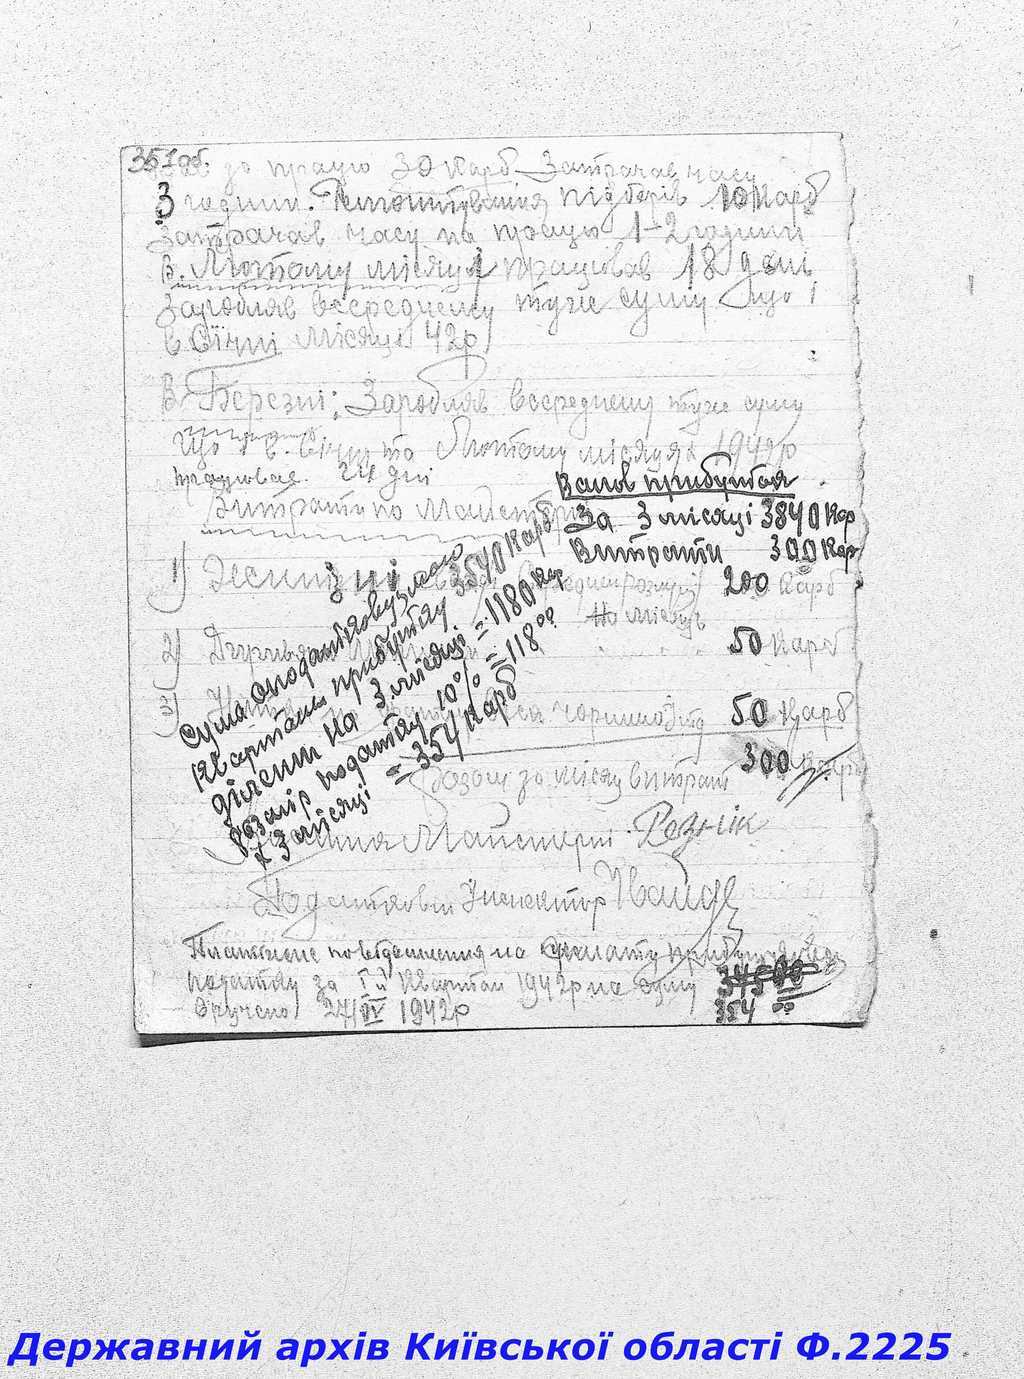 351об.
за працю 30 карб Затрачав часу
3 години. Ремонтування підборів 10 карб
затрачав часу на працю 1-2 години
В. Лютому місяця працював 18 дні
заробляв всередньому туже суму що і
в Січні місяці 42р
В. Березні: Заробляв всередньому туже суму
що і в. Січні та Лютому місяцях 1942р
працював 24 дні
Витрати по Майстерні
Валов прибуток
За 3 місяці 3840 кар
Витрати 300 кар
1) 200 карб
на місяць
2) 50 карб
3) 50 карб
Разом за місяц витрат 300 карб
Сума оподатковуємого
квартальн прибутку 3540 карб
ділении на 3 місяці = 1180 кар
розмір податку 10% = 118 00
х 3 місяці = 354 карб
Майстерні Резнік
Податковий Інспектор
Платіжне повідомлення на сплату прибутков
податку за І й квартал 1942р на суму 34500
354 00
Вручено 24/IV 1942р
Державний архів Київської області Ф.2225